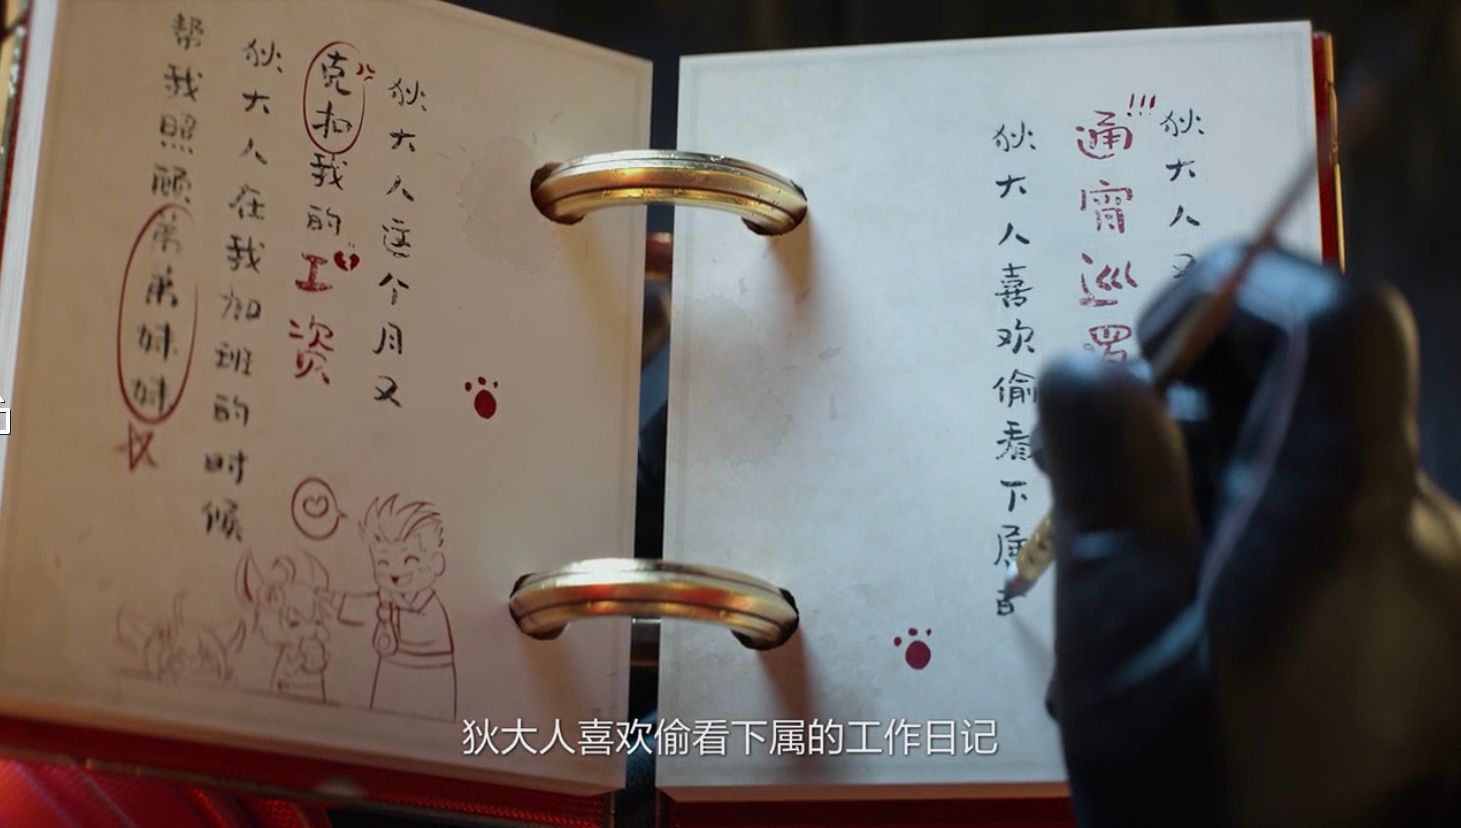 狄大人这个月又
克扣我的工资
狄大人在我加班的时候
帮我照顾弟弟妹妹
狄大人又
!!!
通宵巡逻
狄大人喜欢偷看下属
狄大人喜欢偷看下属的工作日记